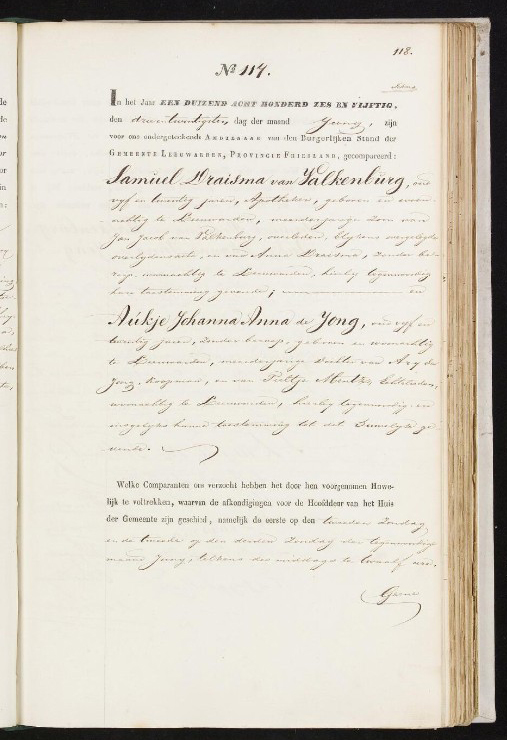 118.
Nº 117.
In het Jaar EEN DUIZEND ACHT HONDERD ZES EN VIJFTIG,
den drieentwintigsten dag der maand Juny, zijn
voor ons ondergeteekende AMBTENAAR van den Burgerlijken Stand der
GEMEENTE LEEUWARDEN, PROVINCIE FRIESLAND, gecompareerd:
Samuel Draisma van Valkenburg, oud
vyf en twintig jaren, Apotheker, geboren en woon-
achtig te Leeuwarden, meerderjarige zoon van
Jan Jacob van Valkenburg, overleden, blykens overgelegde
overlydensacte, en van Anna Draisma, zonder be-
roep, woonachtig te Leeuwarden, hierby tegenwoordig
hare toestemming gevende; en
Aukje Johanna Anna de Jong, oud vyf en
twintig jaren, zonder beroep, geboren en woonachtig
te Leeuwarden, meerderjarige dochter van A de
Jong, Koopman, en van Pietje Echtelieden,
woonachtig te Leeuwarden, hierby tegenwoordig en
mogelyke hunne toestemming tot dit Huwelyk ge-
vende.
Welke Comparanten ons verzocht hebben het door hen voorgenomen Huwe-
lijk te voltrekken, waarvan de afkondigingen voor de Hoofddeur van het Huis
der Gemeente zijn geschied, namelijk de eerste op den tweeden Zondag
en de tweede op den derden Zondag der tegenwoordige
maand Juny, telkens des middags te twaalf ure.
Geene